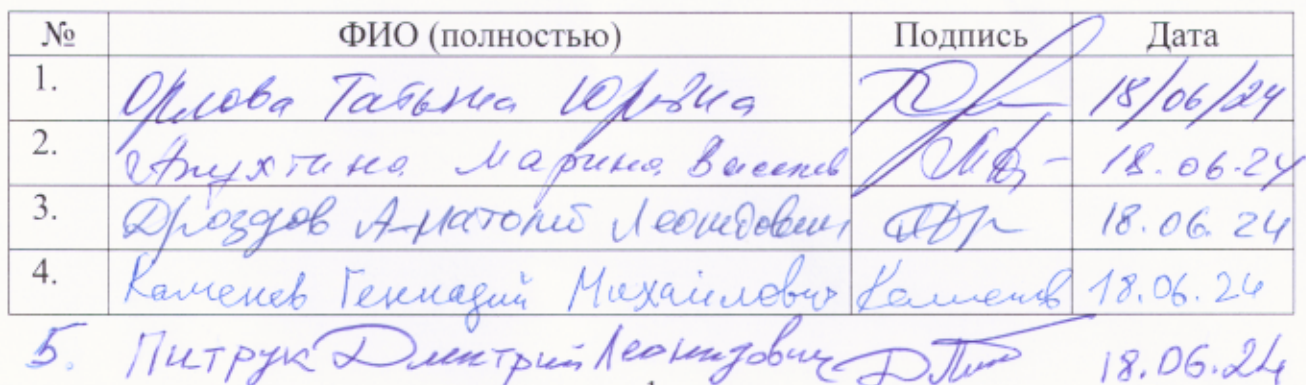 № ФИО (полностью) Подпись Дата
1. Орлова Татьяна Юрьевна 18/06/24
2. Апухтина Марина Васильев 18.06.24
3. Дроздов Анатолий Леонидович 18.06.24
4. Каменев Геннадий Михайлович Каменев 18.06.24
5. Питрук Дмитрий Леонидович 18.06.24